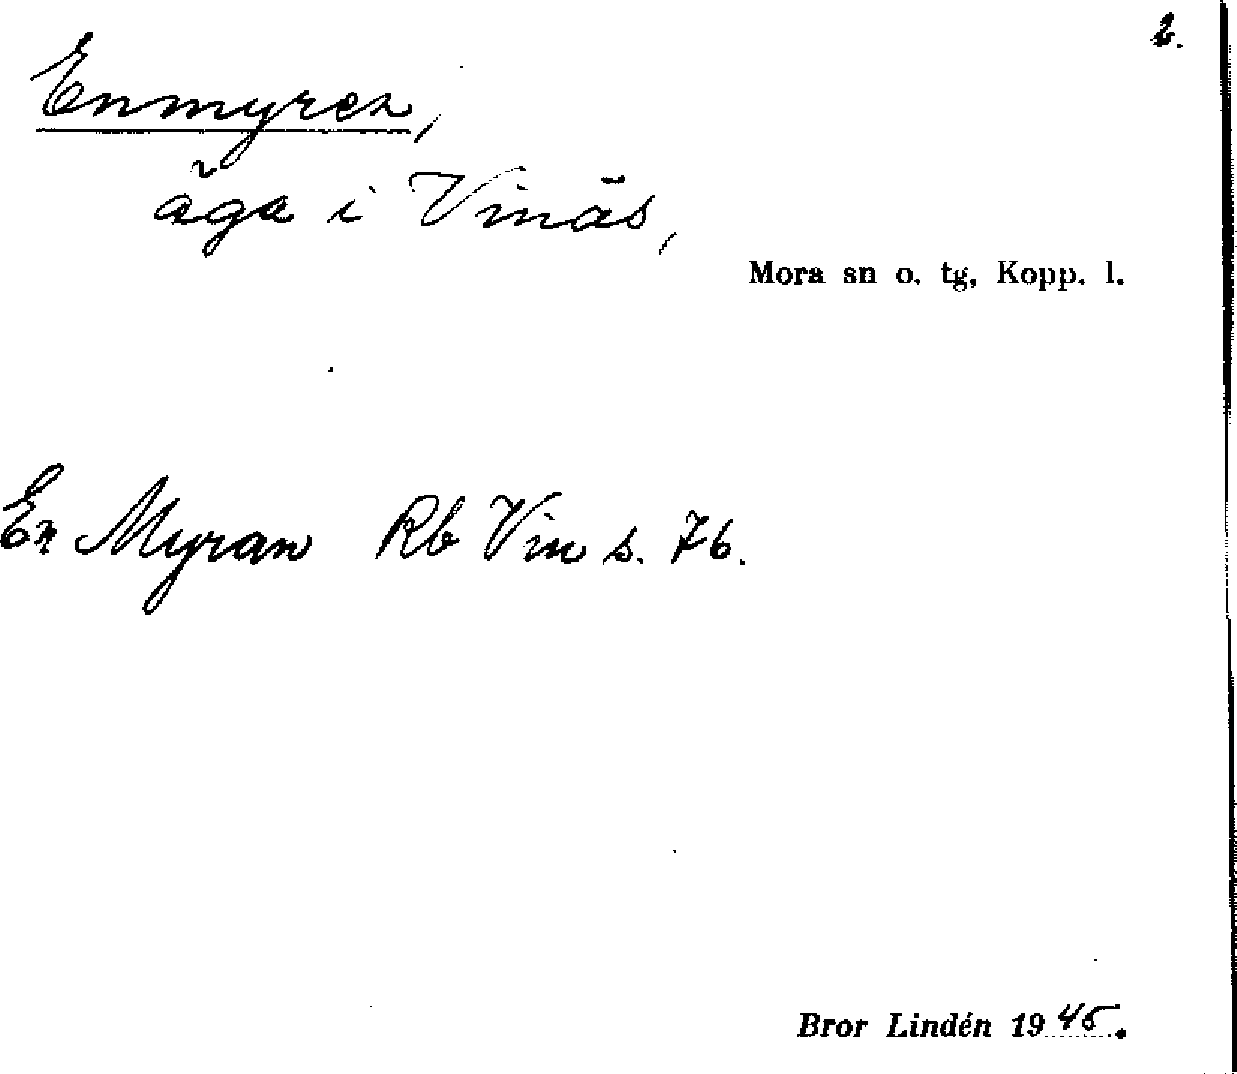 2.
Enmyren,
äga i Vinäs,
Mora sn o. tg, Kopp. l.
En Myran Rb Vin s. 76.
Bror Lindén 1945.